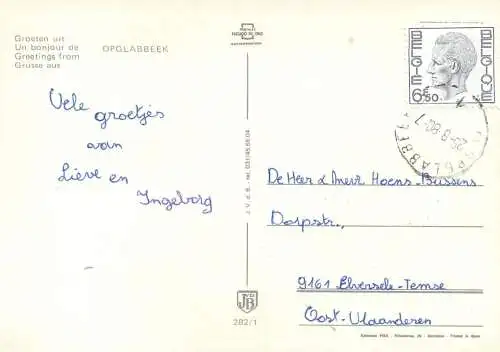 Groeten uit
Un bonjour de
Greetings from
Grüsse aus
OPGLABBEEK
Vele groetjes
van
Lieve en
Ingeborg
J. V. d. B. - tel. 031/45.68.04
JVDB
282/1
BELGIE
BELGIQUE
6F50
OPGLABBEEK
De Heer & Mevr Hoens-Bussens
Dorpstr.,
9161 Elversele-Temse
Oost-Vlaanderen